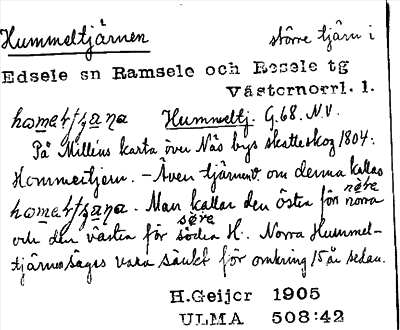 Hummeltjärnen större tjärn i
Edsele sn Ramsele och Resele tg
Västernorrl. l.
Hummeltj. G.68. N.V.
På Milléns karta över Näs bys skatteskog 1804:
Hommeltjern. – Även tjärnen om denna kallas
Man kallar den östra för norra nøre
och den västra för södra søre H. Norra Hummel-
tjärnen säges vara sänkt för omkring 15 år sedan.
H.Geijer 1905
ULMA 508:42